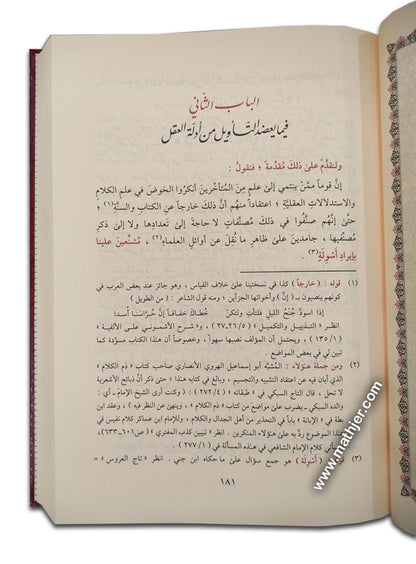 الباب الثاني
فيما يعضد التأويل من أدلة العقل
ولنقدِّمْ على ذلك مُقدِّمةً ؛ فنقولُ :
إنَّ قوماً ممَّنْ ينتمي إلى علمٍ مِنَ المُتأخِّرينَ أنكروا الخوضَ في علمِ الكلامِ
والاستدلالاتِ العقليَّةِ ؛ اعتقاداً منهم أنَّ ذلكَ خارجاً عنِ الكتابِ والسنَّةِ(١)
حتَّى إنَّهم صنَّفُوا في ذلكَ مُصنَّفاتٍ لا حاجةَ إلى تَعدادِها ولا إلى ذكرِ
مصنِّفيها ، جامدينَ على ظاهرِ ما نُقِلَ عن أوائلِ العلماءِ(٢) ، مُشنِّعينَ علينا
بإيرادِ أَسْوِلَةٍ(٣) .
(١) قوله : ( خارجاً ) كذا في نسختينا على خلاف القياس ، وهو جائز عند بعض العرب في
كونهم ينصبون بـ ( إنَّ ) وأخواتها الجزأين ، ومنه قول الشاعر : ( من الطويل )
إذا اسودَّ جُنْحُ الليلِ فلتأتِ ولتكنْ خُطاكَ خفافاً إنَّ حُرَّاسَنا أُسدا
انظر « التذييل والتكميل » ( ٥/٢٦-٢٧ ) ، و« شرح الأشموني على الألفية »
( ١/١٣٥ ) ، ويحتمل أن المؤلف نصبها سهواً ، وخصوصاً أن هذا الكتاب مسوَّدة كما
تبين لي في بعض المواضع .
(٢) ومن جملة هؤلاء : المُشبِّه أبو إسماعيل الهروي الأنصاري صاحب كتاب « ذم الكلام »
الذي أبان فيه عن اعتقاد التشبيه والتجسيم ، وبالغ في كتابه هذا ؛ حتى ذكر أن ذبائح الأشعرية
لا تحل ، قال التاج السبكي في « طبقاته » ( ٤/٢٧٢ ) : ( وقد كان أوتي الشيخ الإمام - أي :
والده السبكي - يضرب على مواضع من كتاب « ذم الكلام » ، وينهى عن النظر فيه ) ، وعقد
ابن بطة في « الإبانة » باباً في التحذير من أهل الجدال والكلام ، وللإمام ابن عساكر كلام في
هذا الموضوع ردَّ به على هؤلاء المنكرين . انظر « تبيين كذب المفتري » ( ص٦٠١-٦٣٣ ) ،
كلام الإمام الشافعي في هذه المسألة في ( ١/٢٧٧ ) .
(٣) ( أسولة ) هو جمع سؤال على ما حكاه ابن جني . انظر « تاج العروس » =
١٨١
www.mathjer.com